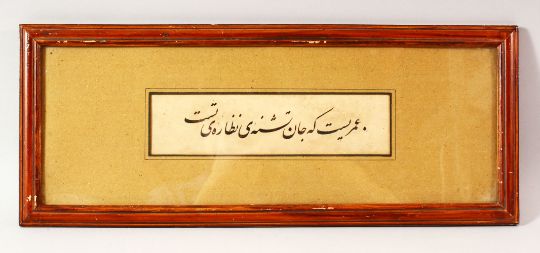 عمریست که جان تشنه‌ی نظاره‌ی تست